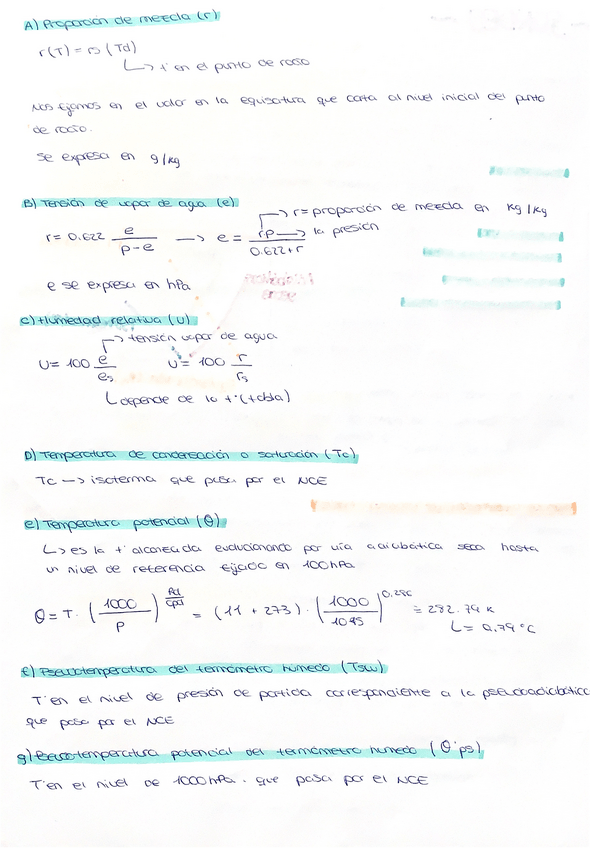 A) Proporción de mezcla (r)
r(T) = rs (Td)
↳ tª en el punto de rocío
Nos fijamos en el valor en la equisatura que corta al nivel inicial del punto
de rocío.
Se expresa en g/kg
B) Tensión de vapor de agua (e)
r = 0.622 e / (p - e) → e = r.p / (0.622 + r)
→ r = proporción de mezcla en kg/kg
→ la presión
e se expresa en hPa
c) Humedad relativa (U)
→ tensión vapor de agua
U = 100 e / es U = 100 r / rs
↳ depende de la tª (tabla)
D) Temperatura de condensación o saturación (Tc)
Tc → isoterma que pasa por el NCE
e) Temperatura potencial (θ)
↳ es la tª alcanzada evolucionando por vía adiabática seca hasta
un nivel de referencia fijado en 100hPa
θ = T · (1000 / p)^(Rd / cpd) = (11 + 273) · (1000 / 1095)^0.286 = 282.79 K
↳ = 0.79 °C
f) Pseudotemperatura del termómetro húmedo (Tsw)
Tª en el nivel de presión de partida correspondiente a la pseudoadiabática
que pasa por el NCE
g) Pseudotemperatura potencial del termómetro húmedo (θ'ps)
Tª en el nivel de 1000hPa. que pasa por el NCE